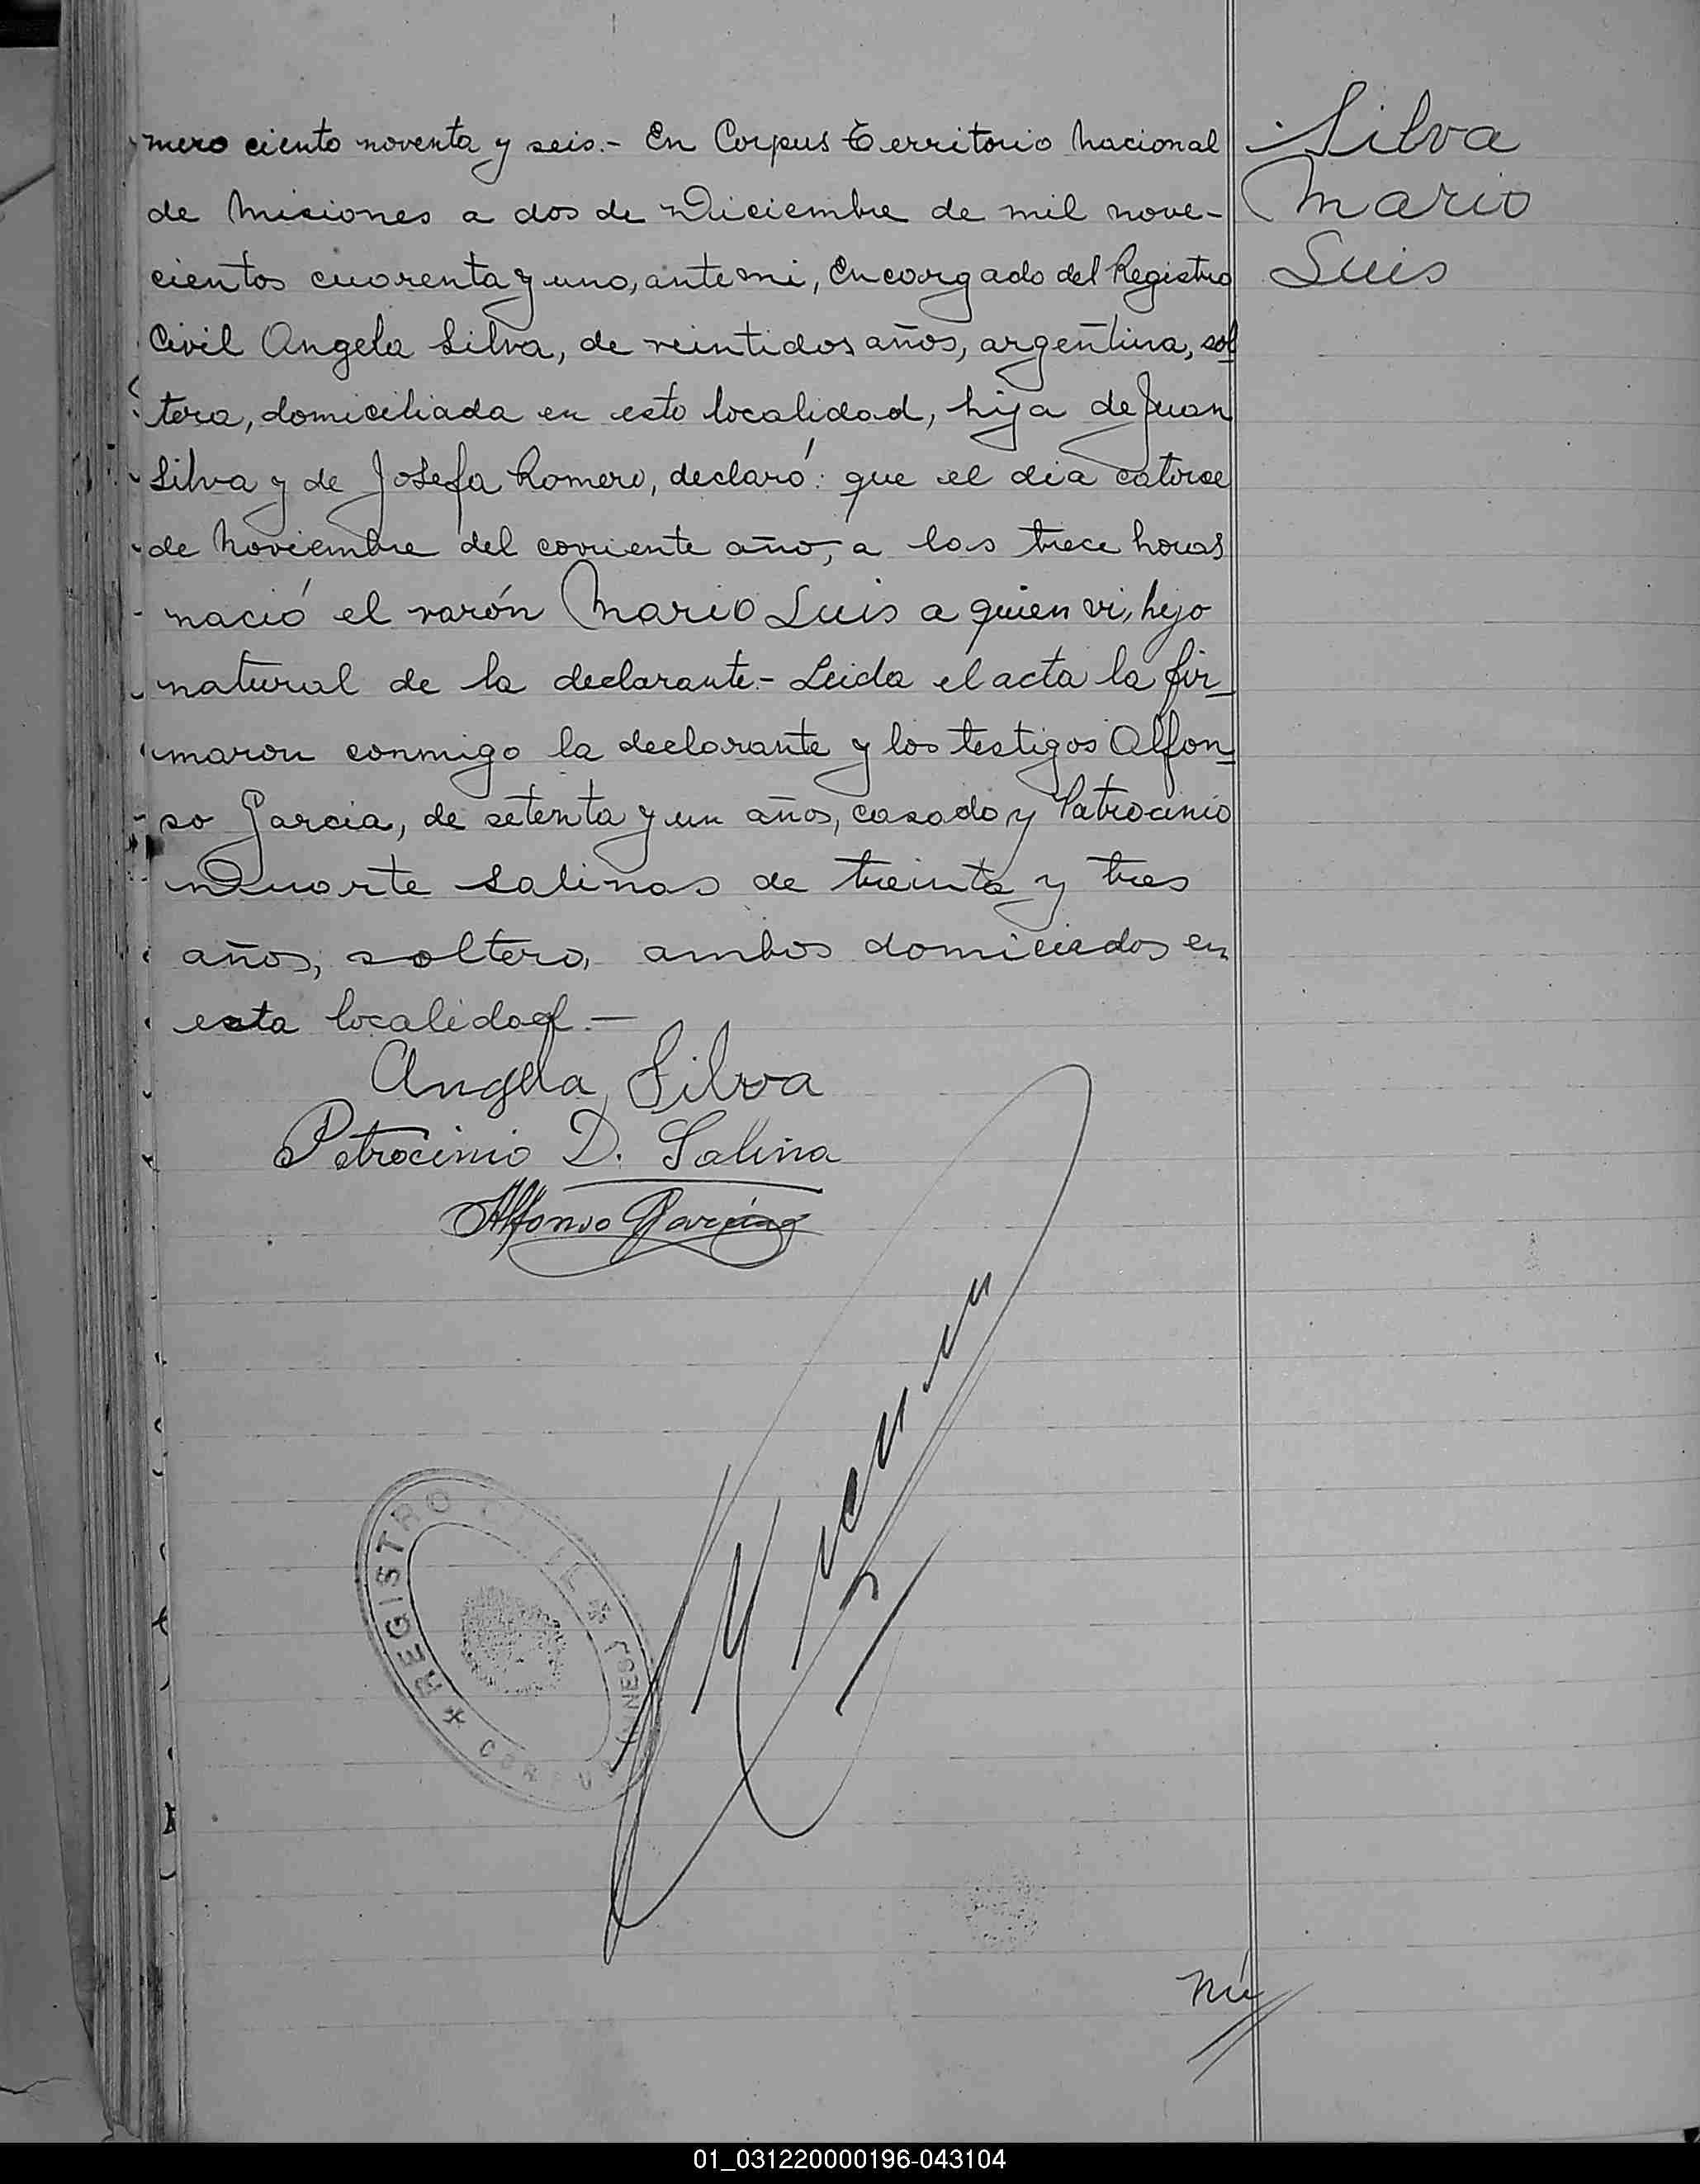 mero ciento noventa y seis.- En Corpus Territorio Nacional
de Misiones a dos de Diciembre de mil nove-
cientos cuarenta y uno, ante mi, Encargado del Registro
Civil Angela Silva, de veintidos años, argentina, sol
tera, domiciliada en esta localidad, hija de Juan
Silva y de Josefa Romero, declaró: que el dia catorce
de Noviembre del corriente año, a las trece horas
nació el varón Mario Luis a quien vi, hijo
natural de la declarante.- Leida el acta la fir-
maron conmigo la declarante y los testigos Alfon-
so Garcia, de setenta y un años, casado y Patrocinio
Duarte Salinas de treinta y tres
años, soltero, ambos domiciados en
esta localidad.-
Silva
Mario
Luis
Angela Silva
Patrocinio D. Salina
Alfonso Garcia
REGISTRO CIVIL
CORPUS (MISIONES)
Nú
01_031220000196-043104